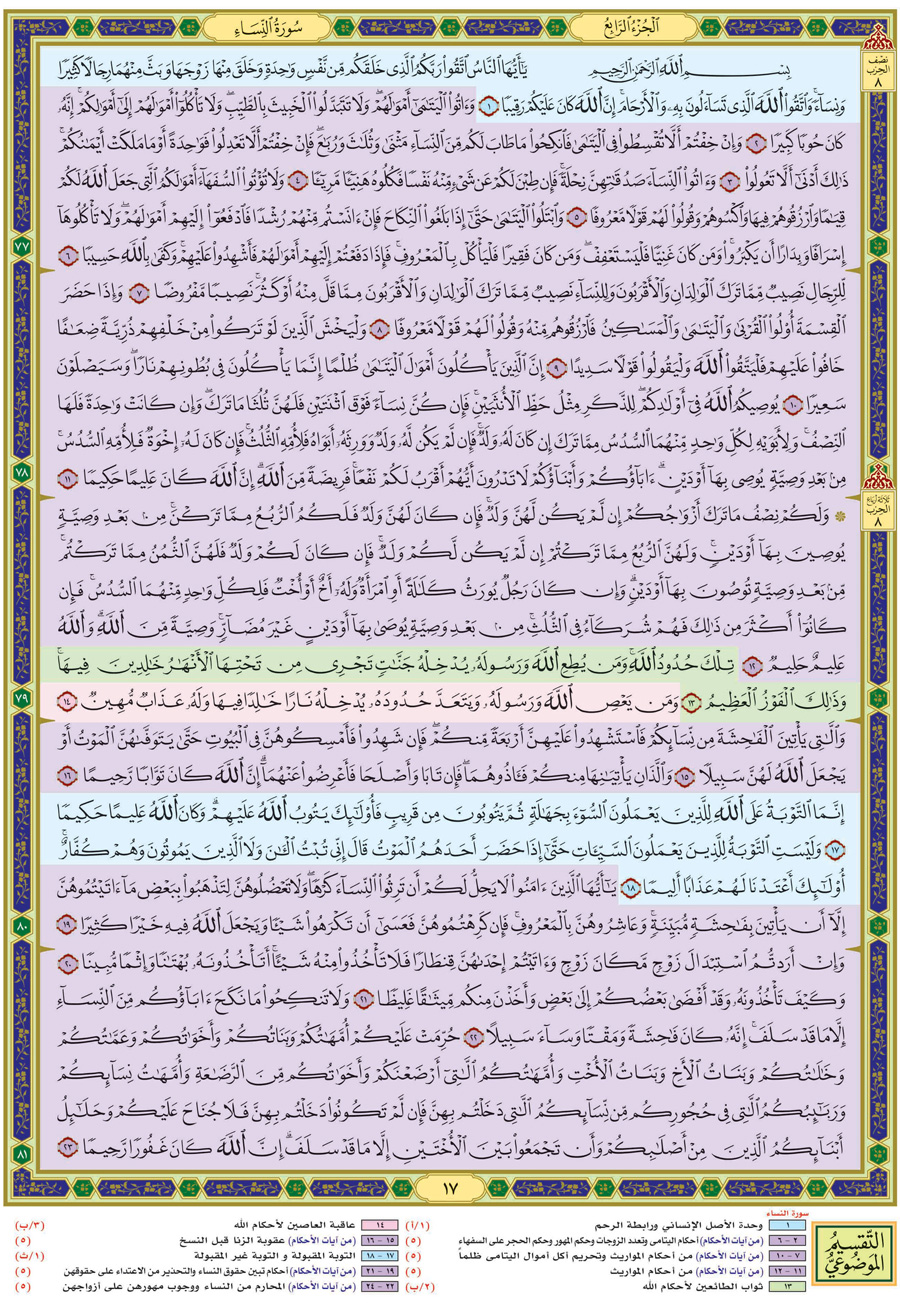 سُورَةُ النِّسَاءِ
الْجُزْءُ الرَّابِعُ
نصف الحزب ٨
بِسْمِ ٱللَّهِ ٱلرَّحْمَٰنِ ٱلرَّحِيمِ يَٰٓأَيُّهَا ٱلنَّاسُ ٱتَّقُوا۟ رَبَّكُمُ ٱلَّذِى خَلَقَكُم مِّن نَّفْسٍ وَٰحِدَةٍ وَخَلَقَ مِنْهَا زَوْجَهَا وَبَثَّ مِنْهُمَا رِجَالًا كَثِيرًا
وَنِسَآءً وَٱتَّقُوا۟ ٱللَّهَ ٱلَّذِى تَسَآءَلُونَ بِهِۦ وَٱلْأَرْحَامَ إِنَّ ٱللَّهَ كَانَ عَلَيْكُمْ رَقِيبًا ١ وَءَاتُوا۟ ٱلْيَتَٰمَىٰٓ أَمْوَٰلَهُمْ وَلَا تَتَبَدَّلُوا۟ ٱلْخَبِيثَ بِٱلطَّيِّبِ وَلَا تَأْكُلُوٓا۟ أَمْوَٰلَهُمْ إِلَىٰٓ أَمْوَٰلِكُمْ إِنَّهُۥ
كَانَ حُوبًا كَبِيرًا ٢ وَإِنْ خِفْتُمْ أَلَّا تُقْسِطُوا۟ فِى ٱلْيَتَٰمَىٰ فَٱنكِحُوا۟ مَا طَابَ لَكُم مِّنَ ٱلنِّسَآءِ مَثْنَىٰ وَثُلَٰثَ وَرُبَٰعَ فَإِنْ خِفْتُمْ أَلَّا تَعْدِلُوا۟ فَوَٰحِدَةً أَوْ مَا مَلَكَتْ أَيْمَٰنُكُمْ
ذَٰلِكَ أَدْنَىٰٓ أَلَّا تَعُولُوا۟ ٣ وَءَاتُوا۟ ٱلنِّسَآءَ صَدُقَٰتِهِنَّ نِحْلَةً فَإِن طِبْنَ لَكُمْ عَن شَىْءٍ مِّنْهُ نَفْسًا فَكُلُوهُ هَنِيٓـًٔا مَّرِيٓـًٔا ٤ وَلَا تُؤْتُوا۟ ٱلسُّفَهَآءَ أَمْوَٰلَكُمُ ٱلَّتِى جَعَلَ ٱللَّهُ لَكُمْ
قِيَٰمًا وَٱرْزُقُوهُمْ فِيهَا وَٱكْسُوهُمْ وَقُولُوا۟ لَهُمْ قَوْلًا مَّعْرُوفًا ٥ وَٱبْتَلُوا۟ ٱلْيَتَٰمَىٰ حَتَّىٰٓ إِذَا بَلَغُوا۟ ٱلنِّكَاحَ فَإِنْ ءَانَسْتُم مِّنْهُمْ رُشْدًا فَٱدْفَعُوٓا۟ إِلَيْهِمْ أَمْوَٰلَهُمْ وَلَا تَأْكُلُوهَآ
إِسْرَافًا وَبِدَارًا أَن يَكْبَرُوا۟ وَمَن كَانَ غَنِيًّا فَلْيَسْتَعْفِفْ وَمَن كَانَ فَقِيرًا فَلْيَأْكُلْ بِٱلْمَعْرُوفِ فَإِذَا دَفَعْتُمْ إِلَيْهِمْ أَمْوَٰلَهُمْ فَأَشْهِدُوا۟ عَلَيْهِمْ وَكَفَىٰ بِٱللَّهِ حَسِيبًا ٦
٧٧
لِّلرِّجَالِ نَصِيبٌ مِّمَّا تَرَكَ ٱلْوَٰلِدَانِ وَٱلْأَقْرَبُونَ وَلِلنِّسَآءِ نَصِيبٌ مِّمَّا تَرَكَ ٱلْوَٰلِدَانِ وَٱلْأَقْرَبُونَ مِمَّا قَلَّ مِنْهُ أَوْ كَثُرَ نَصِيبًا مَّفْرُوضًا ٧ وَإِذَا حَضَرَ
ٱلْقِسْمَةَ أُو۟لُوا۟ ٱلْقُرْبَىٰ وَٱلْيَتَٰمَىٰ وَٱلْمَسَٰكِينُ فَٱرْزُقُوهُم مِّنْهُ وَقُولُوا۟ لَهُمْ قَوْلًا مَّعْرُوفًا ٨ وَلْيَخْشَ ٱلَّذِينَ لَوْ تَرَكُوا۟ مِنْ خَلْفِهِمْ ذُرِّيَّةً ضِعَٰفًا
خَافُوا۟ عَلَيْهِمْ فَلْيَتَّقُوا۟ ٱللَّهَ وَلْيَقُولُوا۟ قَوْلًا سَدِيدًا ٩ إِنَّ ٱلَّذِينَ يَأْكُلُونَ أَمْوَٰلَ ٱلْيَتَٰمَىٰ ظُلْمًا إِنَّمَا يَأْكُلُونَ فِى بُطُونِهِمْ نَارًا وَسَيَصْلَوْنَ
سَعِيرًا ١٠ يُوصِيكُمُ ٱللَّهُ فِىٓ أَوْلَٰدِكُمْ لِلذَّكَرِ مِثْلُ حَظِّ ٱلْأُنثَيَيْنِ فَإِن كُنَّ نِسَآءً فَوْقَ ٱثْنَتَيْنِ فَلَهُنَّ ثُلُثَا مَا تَرَكَ وَإِن كَانَتْ وَٰحِدَةً فَلَهَا
ٱلنِّصْفُ وَلِأَبَوَيْهِ لِكُلِّ وَٰحِدٍ مِّنْهُمَا ٱلسُّدُسُ مِمَّا تَرَكَ إِن كَانَ لَهُۥ وَلَدٌ فَإِن لَّمْ يَكُن لَّهُۥ وَلَدٌ وَوَرِثَهُۥٓ أَبَوَاهُ فَلِأُمِّهِ ٱلثُّلُثُ فَإِن كَانَ لَهُۥٓ إِخْوَةٌ فَلِأُمِّهِ ٱلسُّدُسُ
مِنۢ بَعْدِ وَصِيَّةٍ يُوصِى بِهَآ أَوْ دَيْنٍ ءَابَآؤُكُمْ وَأَبْنَآؤُكُمْ لَا تَدْرُونَ أَيُّهُمْ أَقْرَبُ لَكُمْ نَفْعًا فَرِيضَةً مِّنَ ٱللَّهِ إِنَّ ٱللَّهَ كَانَ عَلِيمًا حَكِيمًا ١١
٧٨
ثلاثة أرباع الحزب ٨
۞ وَلَكُمْ نِصْفُ مَا تَرَكَ أَزْوَٰجُكُمْ إِن لَّمْ يَكُن لَّهُنَّ وَلَدٌ فَإِن كَانَ لَهُنَّ وَلَدٌ فَلَكُمُ ٱلرُّبُعُ مِمَّا تَرَكْنَ مِنۢ بَعْدِ وَصِيَّةٍ
يُوصِينَ بِهَآ أَوْ دَيْنٍ وَلَهُنَّ ٱلرُّبُعُ مِمَّا تَرَكْتُمْ إِن لَّمْ يَكُن لَّكُمْ وَلَدٌ فَإِن كَانَ لَكُمْ وَلَدٌ فَلَهُنَّ ٱلثُّمُنُ مِمَّا تَرَكْتُم
مِّنۢ بَعْدِ وَصِيَّةٍ تُوصُونَ بِهَآ أَوْ دَيْنٍ وَإِن كَانَ رَجُلٌ يُورَثُ كَلَٰلَةً أَوِ ٱمْرَأَةٌ وَلَهُۥٓ أَخٌ أَوْ أُخْتٌ فَلِكُلِّ وَٰحِدٍ مِّنْهُمَا ٱلسُّدُسُ فَإِن
كَانُوٓا۟ أَكْثَرَ مِن ذَٰلِكَ فَهُمْ شُرَكَآءُ فِى ٱلثُّلُثِ مِنۢ بَعْدِ وَصِيَّةٍ يُوصَىٰ بِهَآ أَوْ دَيْنٍ غَيْرَ مُضَآرٍّ وَصِيَّةً مِّنَ ٱللَّهِ وَٱللَّهُ
عَلِيمٌ حَلِيمٌ ١٢ تِلْكَ حُدُودُ ٱللَّهِ وَمَن يُطِعِ ٱللَّهَ وَرَسُولَهُۥ يُدْخِلْهُ جَنَّٰتٍ تَجْرِى مِن تَحْتِهَا ٱلْأَنْهَٰرُ خَٰلِدِينَ فِيهَا
وَذَٰلِكَ ٱلْفَوْزُ ٱلْعَظِيمُ ١٣ وَمَن يَعْصِ ٱللَّهَ وَرَسُولَهُۥ وَيَتَعَدَّ حُدُودَهُۥ يُدْخِلْهُ نَارًا خَٰلِدًا فِيهَا وَلَهُۥ عَذَابٌ مُّهِينٌ ١٤
٧٩
وَٱلَّٰتِى يَأْتِينَ ٱلْفَٰحِشَةَ مِن نِّسَآئِكُمْ فَٱسْتَشْهِدُوا۟ عَلَيْهِنَّ أَرْبَعَةً مِّنكُمْ فَإِن شَهِدُوا۟ فَأَمْسِكُوهُنَّ فِى ٱلْبُيُوتِ حَتَّىٰ يَتَوَفَّىٰهُنَّ ٱلْمَوْتُ أَوْ
يَجْعَلَ ٱللَّهُ لَهُنَّ سَبِيلًا ١٥ وَٱلَّذَانِ يَأْتِيَٰنِهَا مِنكُمْ فَـَٔاذُوهُمَا فَإِن تَابَا وَأَصْلَحَا فَأَعْرِضُوا۟ عَنْهُمَآ إِنَّ ٱللَّهَ كَانَ تَوَّابًا رَّحِيمًا ١٦
إِنَّمَا ٱلتَّوْبَةُ عَلَى ٱللَّهِ لِلَّذِينَ يَعْمَلُونَ ٱلسُّوٓءَ بِجَهَٰلَةٍ ثُمَّ يَتُوبُونَ مِن قَرِيبٍ فَأُو۟لَٰٓئِكَ يَتُوبُ ٱللَّهُ عَلَيْهِمْ وَكَانَ ٱللَّهُ عَلِيمًا حَكِيمًا
١٧ وَلَيْسَتِ ٱلتَّوْبَةُ لِلَّذِينَ يَعْمَلُونَ ٱلسَّيِّـَٔاتِ حَتَّىٰٓ إِذَا حَضَرَ أَحَدَهُمُ ٱلْمَوْتُ قَالَ إِنِّى تُبْتُ ٱلْـَٰٔنَ وَلَا ٱلَّذِينَ يَمُوتُونَ وَهُمْ كُفَّارٌ
أُو۟لَٰٓئِكَ أَعْتَدْنَا لَهُمْ عَذَابًا أَلِيمًا ١٨ يَٰٓأَيُّهَا ٱلَّذِينَ ءَامَنُوا۟ لَا يَحِلُّ لَكُمْ أَن تَرِثُوا۟ ٱلنِّسَآءَ كَرْهًا وَلَا تَعْضُلُوهُنَّ لِتَذْهَبُوا۟ بِبَعْضِ مَآ ءَاتَيْتُمُوهُنَّ
إِلَّآ أَن يَأْتِينَ بِفَٰحِشَةٍ مُّبَيِّنَةٍ وَعَاشِرُوهُنَّ بِٱلْمَعْرُوفِ فَإِن كَرِهْتُمُوهُنَّ فَعَسَىٰٓ أَن تَكْرَهُوا۟ شَيْـًٔا وَيَجْعَلَ ٱللَّهُ فِيهِ خَيْرًا كَثِيرًا ١٩
٨٠
وَإِنْ أَرَدتُّمُ ٱسْتِبْدَالَ زَوْجٍ مَّكَانَ زَوْجٍ وَءَاتَيْتُمْ إِحْدَىٰهُنَّ قِنطَارًا فَلَا تَأْخُذُوا۟ مِنْهُ شَيْـًٔا أَتَأْخُذُونَهُۥ بُهْتَٰنًا وَإِثْمًا مُّبِينًا ٢٠
وَكَيْفَ تَأْخُذُونَهُۥ وَقَدْ أَفْضَىٰ بَعْضُكُمْ إِلَىٰ بَعْضٍ وَأَخَذْنَ مِنكُم مِّيثَٰقًا غَلِيظًا ٢١ وَلَا تَنكِحُوا۟ مَا نَكَحَ ءَابَآؤُكُم مِّنَ ٱلنِّسَآءِ
إِلَّا مَا قَدْ سَلَفَ إِنَّهُۥ كَانَ فَٰحِشَةً وَمَقْتًا وَسَآءَ سَبِيلًا ٢٢ حُرِّمَتْ عَلَيْكُمْ أُمَّهَٰتُكُمْ وَبَنَاتُكُمْ وَأَخَوَٰتُكُمْ وَعَمَّٰتُكُمْ
وَخَٰلَٰتُكُمْ وَبَنَاتُ ٱلْأَخِ وَبَنَاتُ ٱلْأُخْتِ وَأُمَّهَٰتُكُمُ ٱلَّٰتِىٓ أَرْضَعْنَكُمْ وَأَخَوَٰتُكُم مِّنَ ٱلرَّضَٰعَةِ وَأُمَّهَٰتُ نِسَآئِكُمْ
وَرَبَٰٓئِبُكُمُ ٱلَّٰتِى فِى حُجُورِكُم مِّن نِّسَآئِكُمُ ٱلَّٰتِى دَخَلْتُم بِهِنَّ فَإِن لَّمْ تَكُونُوا۟ دَخَلْتُم بِهِنَّ فَلَا جُنَاحَ عَلَيْكُمْ وَحَلَٰٓئِلُ
أَبْنَآئِكُمُ ٱلَّذِينَ مِنْ أَصْلَٰبِكُمْ وَأَن تَجْمَعُوا۟ بَيْنَ ٱلْأُخْتَيْنِ إِلَّا مَا قَدْ سَلَفَ إِنَّ ٱللَّهَ كَانَ غَفُورًا رَّحِيمًا ٢٣
٨١
١٧
التَّقسيمُ المَوضُوعيُّ
سورة النساء
١ وحدة الأصل الإنساني ورابطة الرحم (١/أ)
٢ - ٦ (من آيات الأحكام) أحكام اليتامى وتعدد الزوجات وحكم المهور وحكم الحجر على السفهاء (٥)
٧ - ١٠ (من آيات الأحكام) من أحكام المواريث وتحريم أكل أموال اليتامى ظلماً (٥)
١١ - ١٢ (من آيات الأحكام) من أحكام المواريث (٥)
١٣ ثواب الطائعين لأحكام الله (٢/ب)
١٤ عاقبة العاصين لأحكام الله (٣/ب)
١٥ - ١٦ (من آيات الأحكام) عقوبة الزنا قبل النسخ (٥)
١٧ - ١٨ التوبة المقبولة و التوبة غير المقبولة (١/ث)
١٩ - ٢١ (من آيات الأحكام) أحكام تبين حقوق النساء والتحذير من الاعتداء على حقوقهن (٥)
٢٢ - ٢٤ (من آيات الأحكام) المحارم من النساء ووجوب مهورهن على أزواجهن (٥)